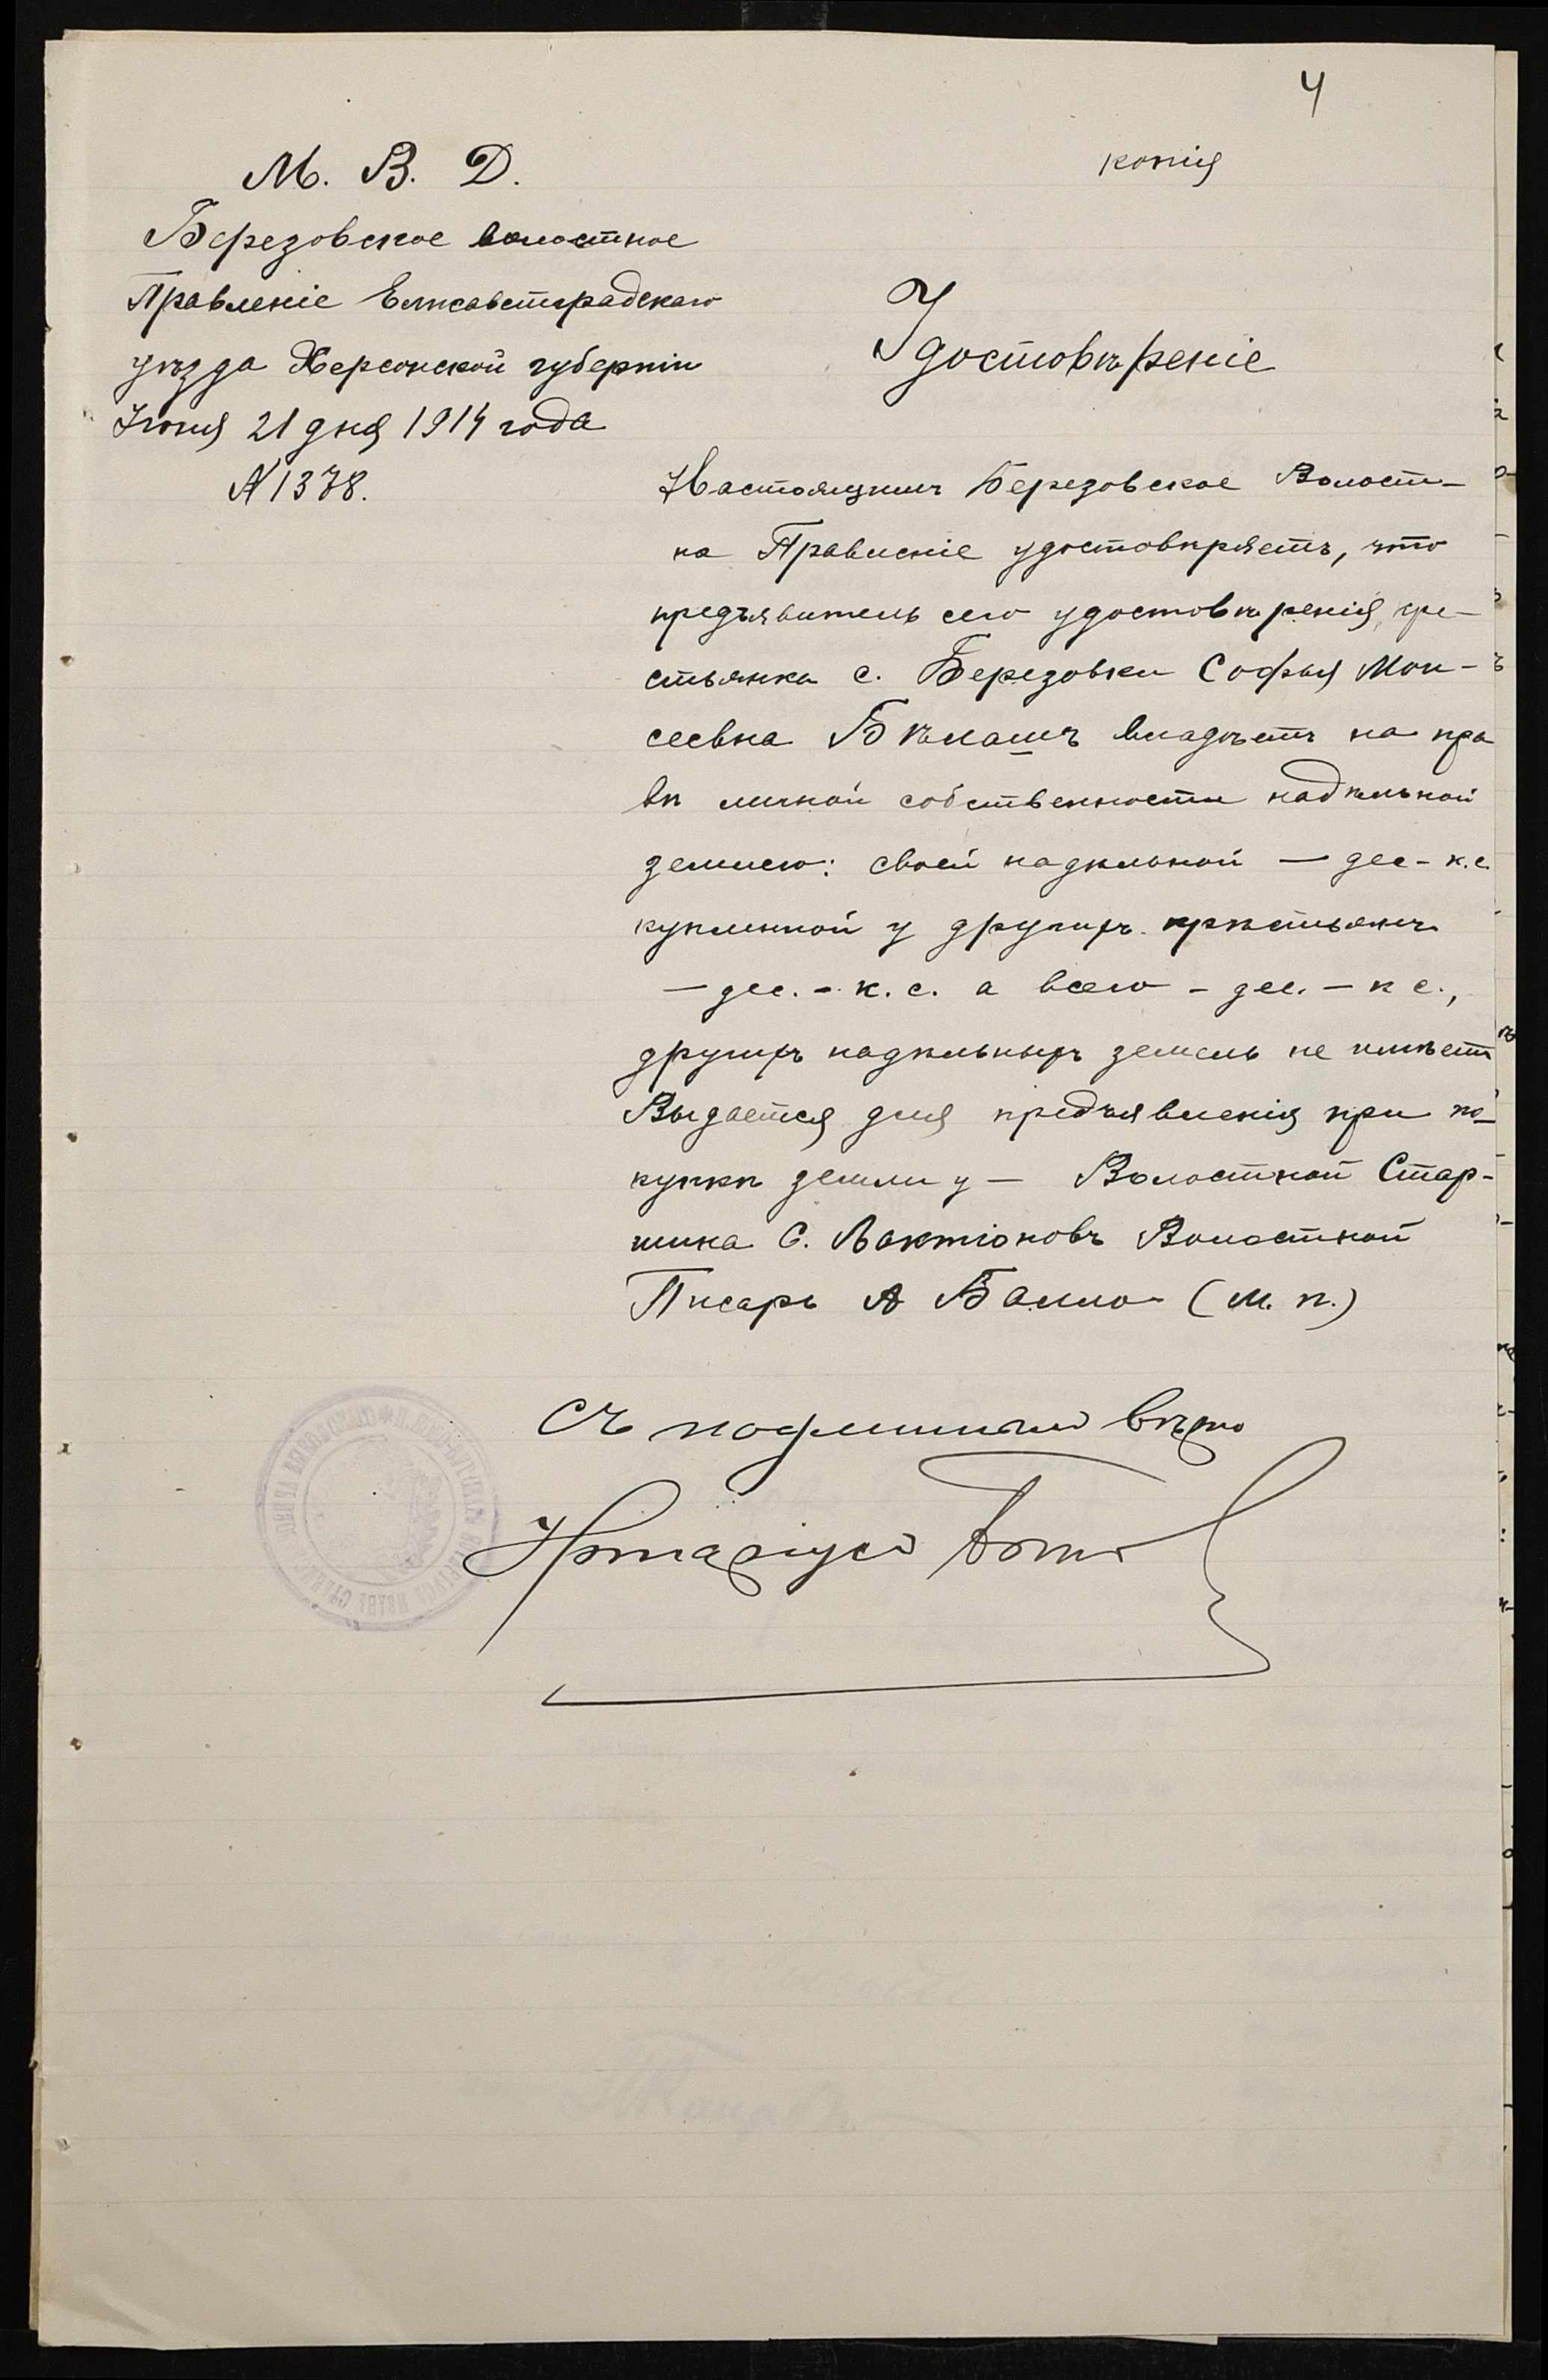 4
копія
М. В. Д.
Березовское волостное
Правленіе Елисаветградскаго
уѣзда Херсонской губерніи
Іюня 21 дня 1914 года
№ 1378.
Удостовѣреніе
Настоящимъ Березовское Волост-
на Правленіе удостовѣряетъ, что
предъявитель сего удостовѣренія, кре-
стьянка с. Березовки Софья Мои-
сеевна Бѣлашъ владѣетъ на пра
вѣ личной собственности надѣльной
землею: своей надѣльной — дес - к.с.
купленной у другихъ крестьянъ
— дес. - к. с. а всего - дес. - к с.,
другихъ надѣльныхъ земель не имѣетъ
Выдается для предъявленія при по-
купкѣ земли у — Волостной Стар-
шина С. Лактіоновъ Волостной
Писарь А (м. п.)
Съ подлиннымъ вѣрно
Нотаріусъ